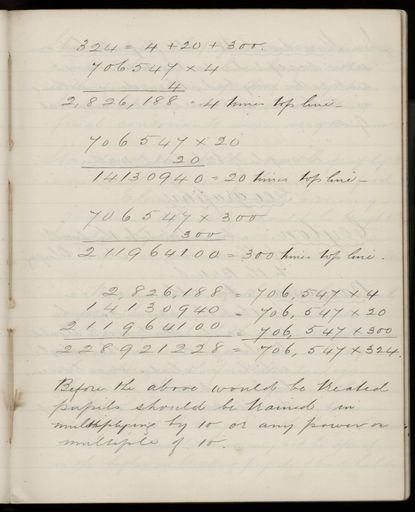 324 = 4 + 20 + 300
706547 × 4
4
2,826,188 = 4 times top line —
706547 × 20
20
14130940 = 20 times top line —
706547 × 300
300
211964100 = 300 times top line.
2,826,188 = 706,547 × 4
14130940 = 706,547 × 20
211964100 = 706,547 × 300
228921228 = 706,547 × 324.
Before the above would be treated
pupils should be trained in
multiplying by 10 or any power or
multiple of 10.